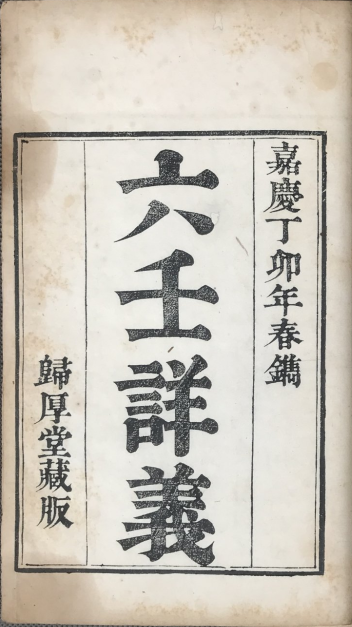 嘉慶丁卯年春鐫
六壬詳義
歸厚堂藏版